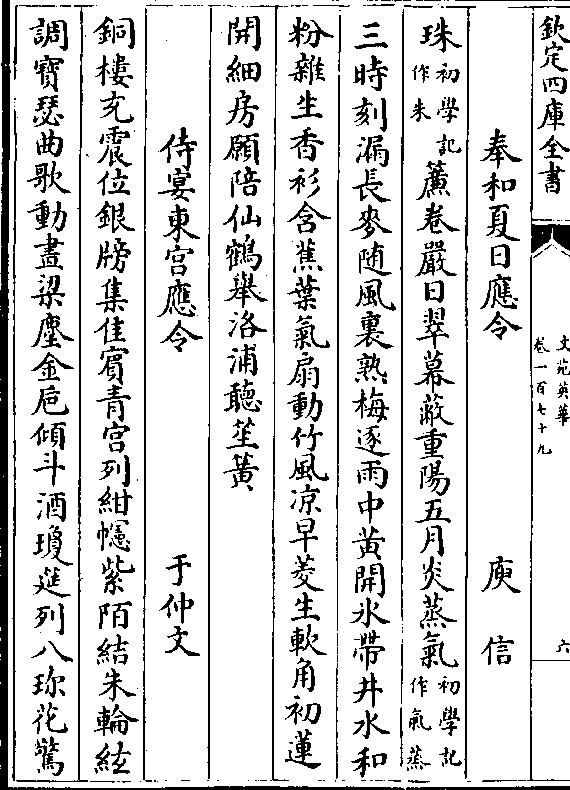 欽定四庫全書
文苑英華
卷一百七十九
六
奉和夏日應令 庾信
珠初學記作朱簾卷嚴日翠幕蔽重陽五月炎蒸氣初學記作氣蒸
三時刻漏長麥随風裏熟梅逐雨中黄開氷帶井水和
粉雜生香衫含蕉葉氣扇動竹風凉早菱生軟角初蓮
開細房願陪仙鶴舉洛浦聽笙簧
侍宴東宫應令 于仲文
銅樓充震位銀牓集佳賔青宫列紺幰紫陌結朱輪絃
調寳瑟曲歌動畫梁塵金巵傾斗酒瓊筵列八珎花驚